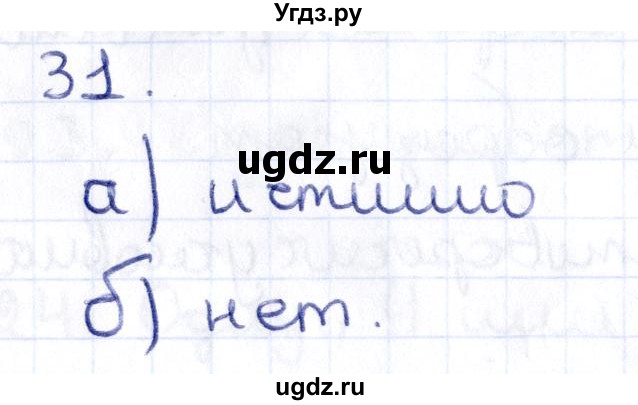 Угдз.ру
31.
ugdz.ru
а) истинно
б) нет.
ugdz.ru